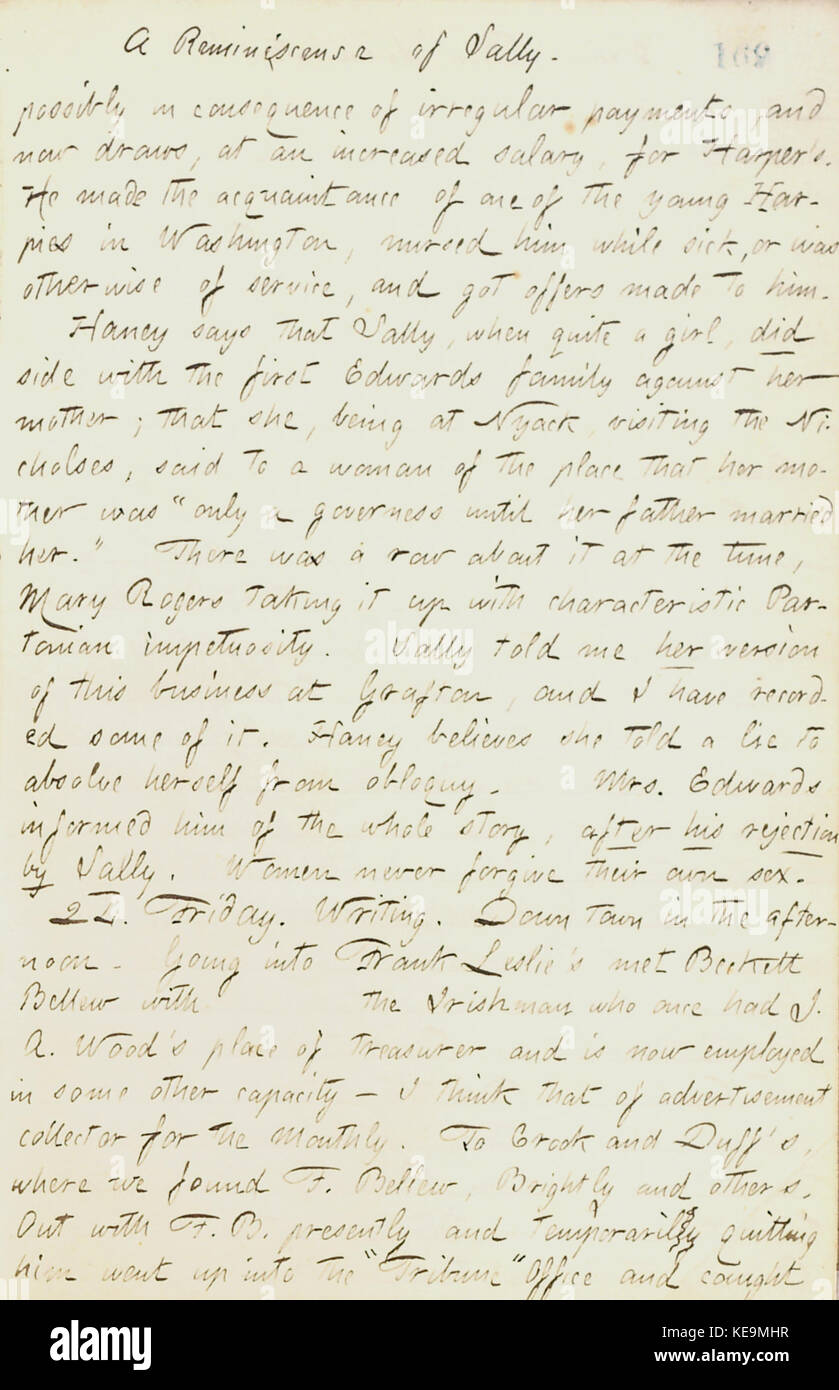 A Reminiscense of Sally.
169
possibly in consequence of irregular payments, and
now draws, at an increased salary, for Harper's.
He made the acquaintance of one of the young Har-
pies in Washington, nursed him while sick, or was
otherwise of service, and got offers made to him.
Haney says that Sally, when quite a girl, did
side with the first Edwards family against her
mother; that she, being at Nyack, visiting the Ni-
cholses, said to a woman of the place that her mo-
ther was "only a governess until her father married
her." There was a row about it at the time,
Mary Rogers taking it up with characteristic Par-
tonian impetuosity. Sally told me her version
of this business at Grafton, and I have record-
ed some of it. Haney believes she told a lie to
absolve herself from obloquy. Mrs. Edwards
informed him of the whole story, after his rejection
by Sally. Women never forgive their own sex.
Friday. Writing. Down town in the after-
noon. Going into Frank Leslie's met Beckett
Bellew with the Irishman who once had J.
A. Wood's place of treasurer and is now employed
in some other capacity — I think that of advertisement
collector for the Monthly. To Crook and Duff's,
where we found F. Bellew, Brightly and others.
Out with F. B. presently and temporarily quitting
him went up into the "Tribune" Office and caught
alamy
a
alamy stock photo
KE9MHR
www.alamy.com